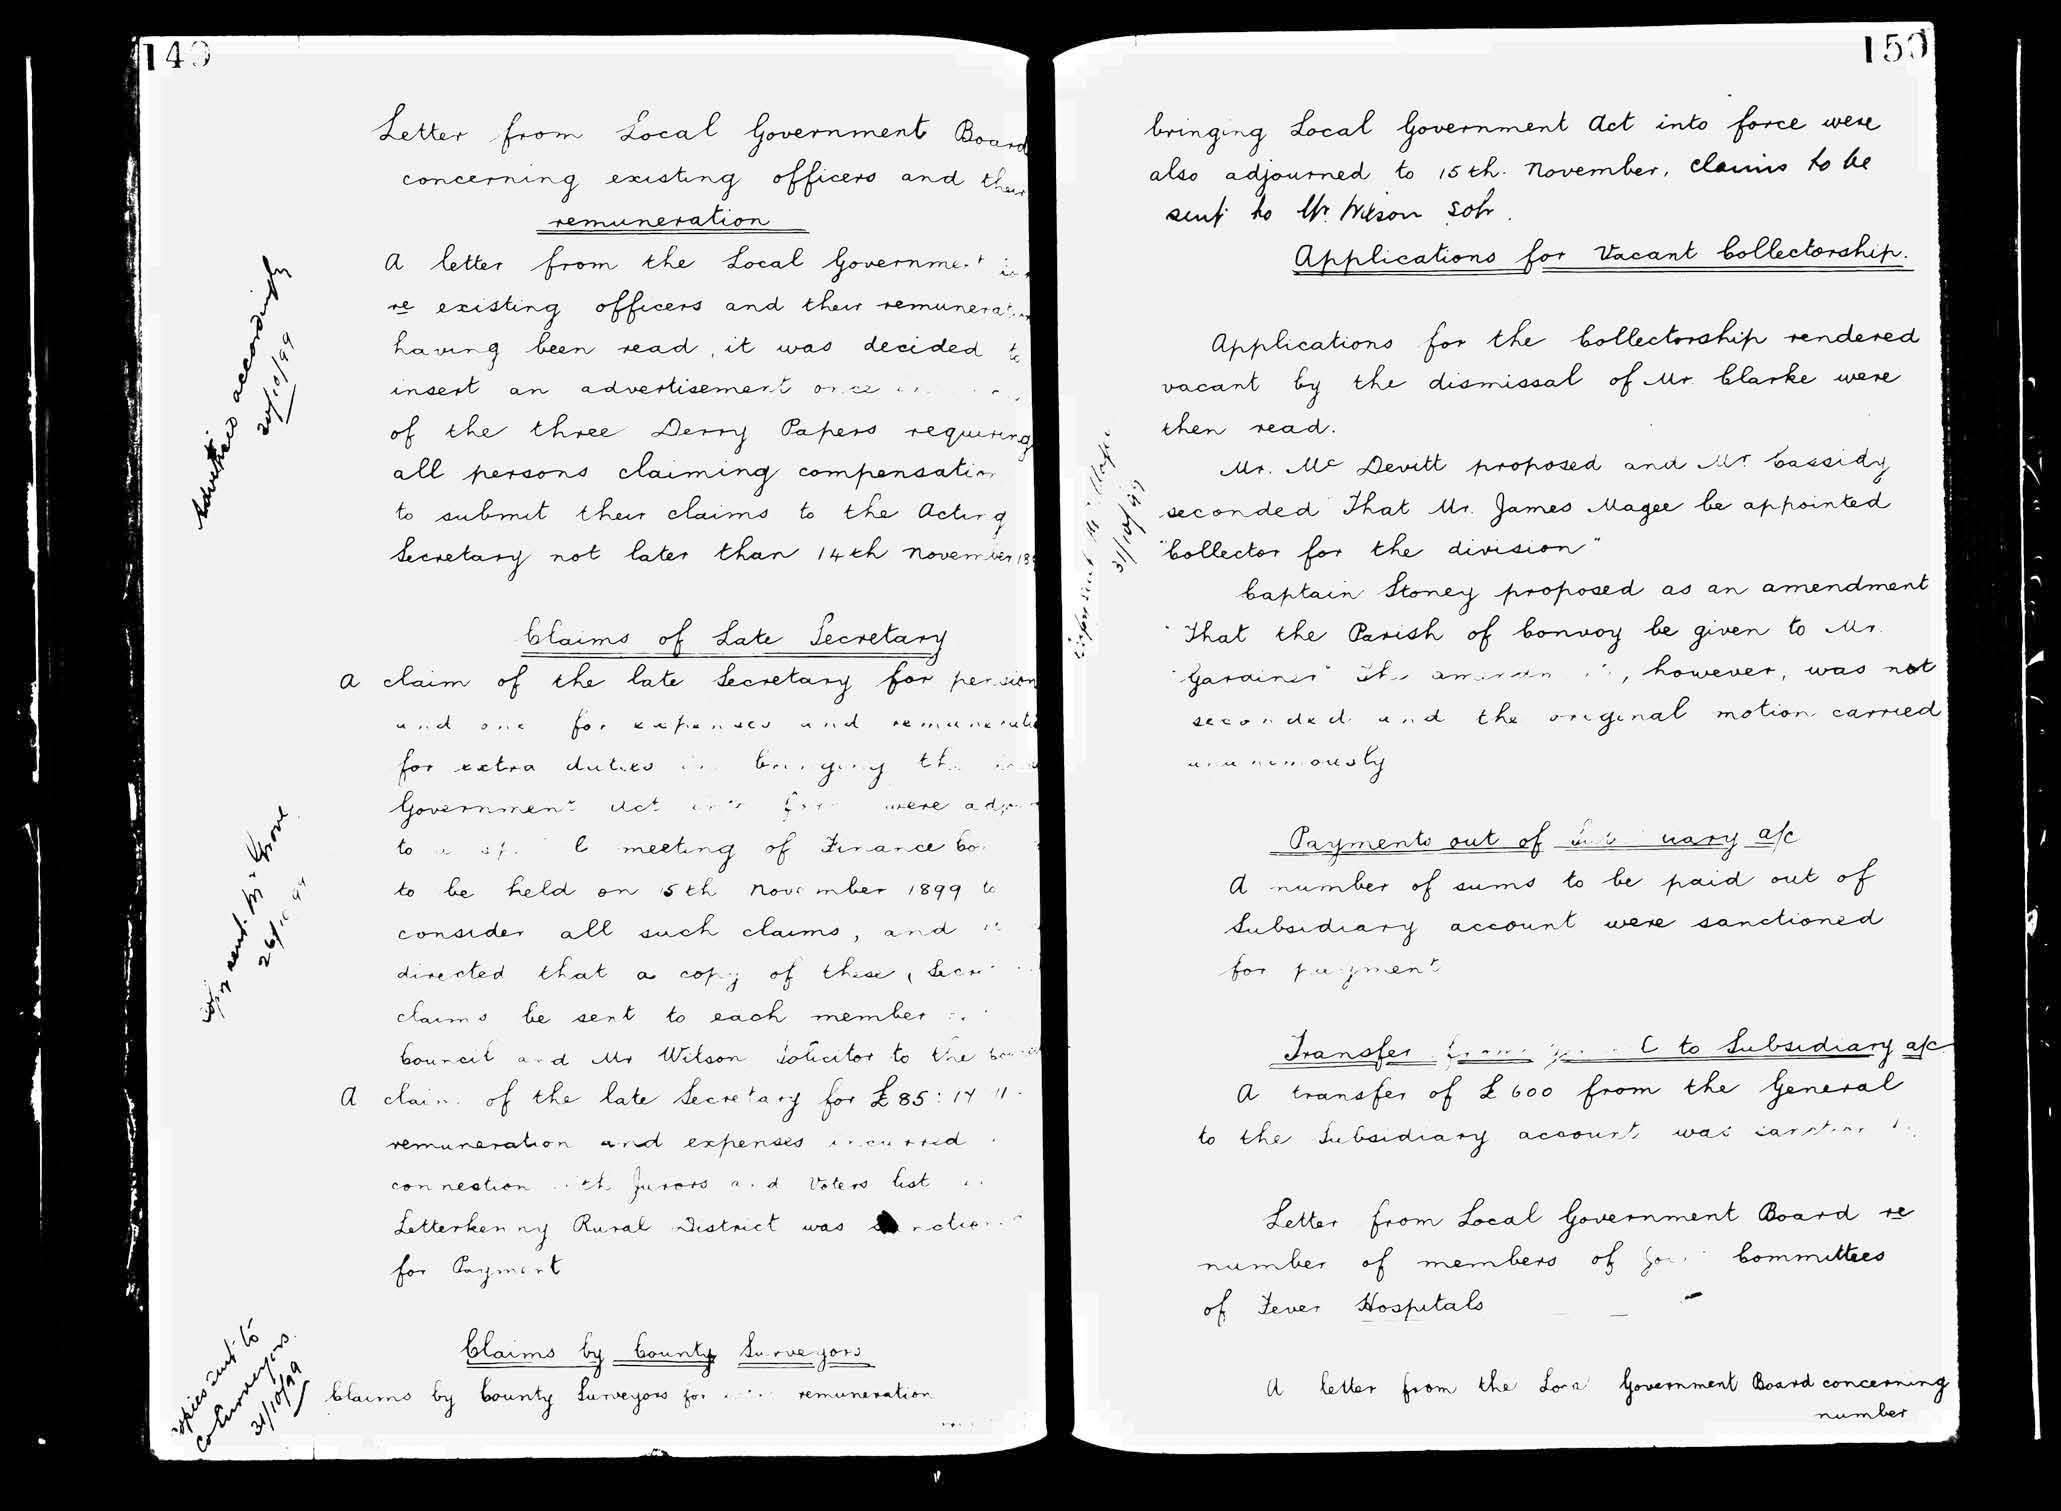 149
Letter from Local Government Board
concerning existing officers and their
remuneration
A letter from the Local Government
re existing officers and their
having been read, it was decided to
insert an advertisement once
of the three Derry Papers requiring
all persons claiming compensation
to submit their claims to the Acting
Secretary not later than 14th November
Advertised accordingly
20/10/99
Claims of Late Secretary
A claim of the late Secretary for pension
and one for expenses and
for extra duties
Government Act were
to meeting of Finance
to be held on 5th November 1899 to
consider all such claims, and
directed that a copy of these
claims be sent to each member
Council and Mr Wilson Solicitor to the
Copy sent
26/10/99
A claim of the late Secretary for £85:
remuneration and expenses incurred
connection with Jurors and Voters list
Letterkenny Rural District was
for Payment
Claims by County Surveyors
Claims by County Surveyors for remuneration
Copies sent to
Co Surveyors.
31/10/99
150
bringing Local Government Act into force were
also adjourned to 15th. November, claims to be
sent to Mr. Wilson Solr.
Applications for Vacant Collectorship.
Applications for the Collectorship rendered
vacant by the dismissal of Mr. Clarke were
then read.
Mr. McDevitt proposed and Mr Cassidy
seconded That Mr. James Magee be appointed
"Collector for the division"
31/10/99
Captain Stoney proposed as an amendment
"That the Parish of Convoy be given to Mr.
"Gardiner" The, however, was not
seconded and the original motion carried
unanimously
Payments out of a/c
A number of sums to be paid out of
Subsidiary account were sanctioned
for payment
Transfer from to Subsidiary a/c
A transfer of £600 from the General
to the Subsidiary account was
Letter from Local Government Board re
number of members of Committees
of Fever Hospitals
A letter from the Local Government Board concerning
number